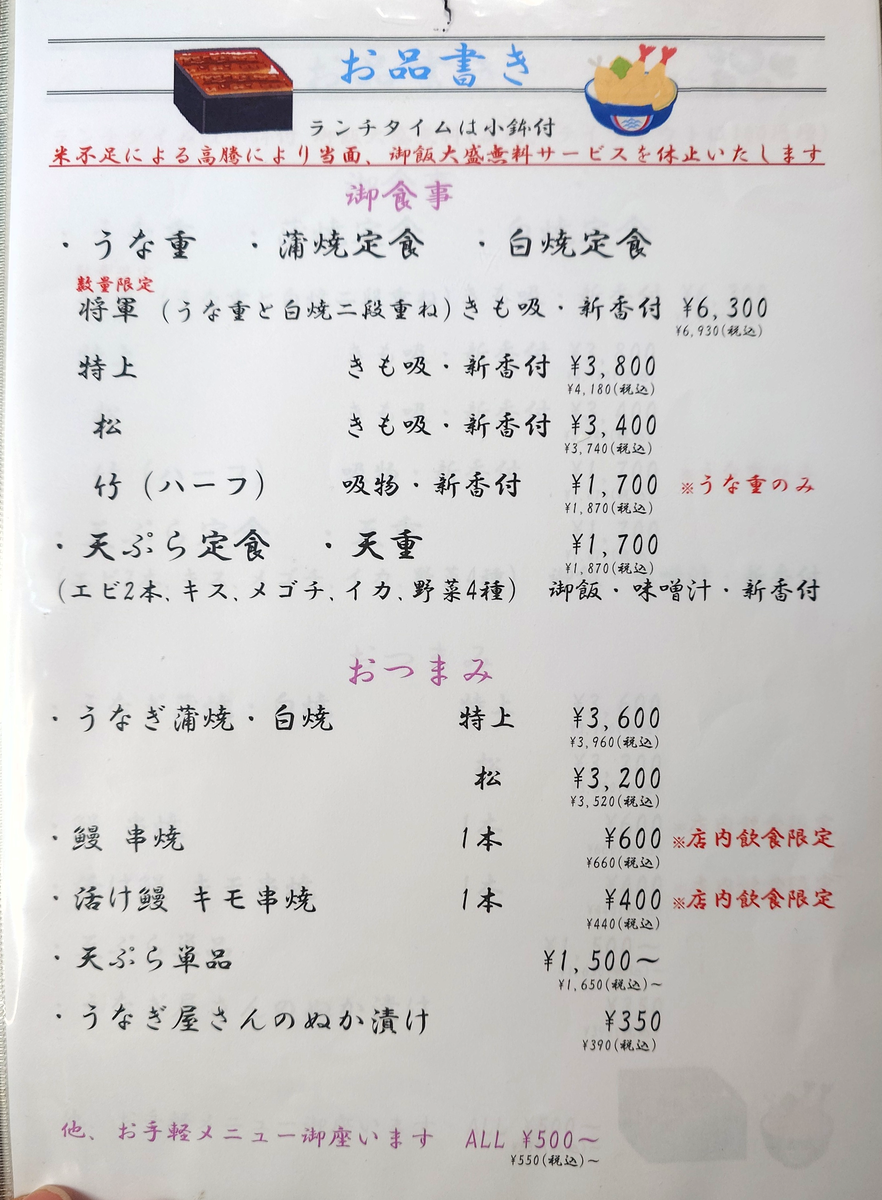 お品書き
ランチタイムは小鉢付
米不足による高騰により当面、御飯大盛無料サービスを休止いたします
御食事
・うな重 ・蒲焼定食 ・白焼定食
数量限定
将軍 (うな重と白焼二段重ね)きも吸・新香付 ¥6,300
¥6,930(税込)
特上 きも吸・新香付 ¥3,800
¥4,180(税込)
松 きも吸・新香付 ¥3,400
¥3,740(税込)
竹 (ハーフ) 吸物・新香付 ¥1,700 ※うな重のみ
¥1,870(税込)
・天ぷら定食 ・天重 ¥1,700
¥1,870(税込)
(エビ2本、キス、メゴチ、イカ、野菜4種) 御飯・味噌汁・新香付
おつまみ
・うなぎ蒲焼・白焼 特上 ¥3,600
¥3,960(税込)
松 ¥3,200
¥3,520(税込)
・鰻 串焼 1本 ¥600 ※店内飲食限定
¥660(税込)
・活け鰻 キモ串焼 1本 ¥400 ※店内飲食限定
¥440(税込)
・天ぷら単品 ¥1,500～
¥1,650(税込)～
・うなぎ屋さんのぬか漬け ¥350
¥390(税込)
他、お手軽メニュー御座います ALL ¥500～
¥550(税込)～